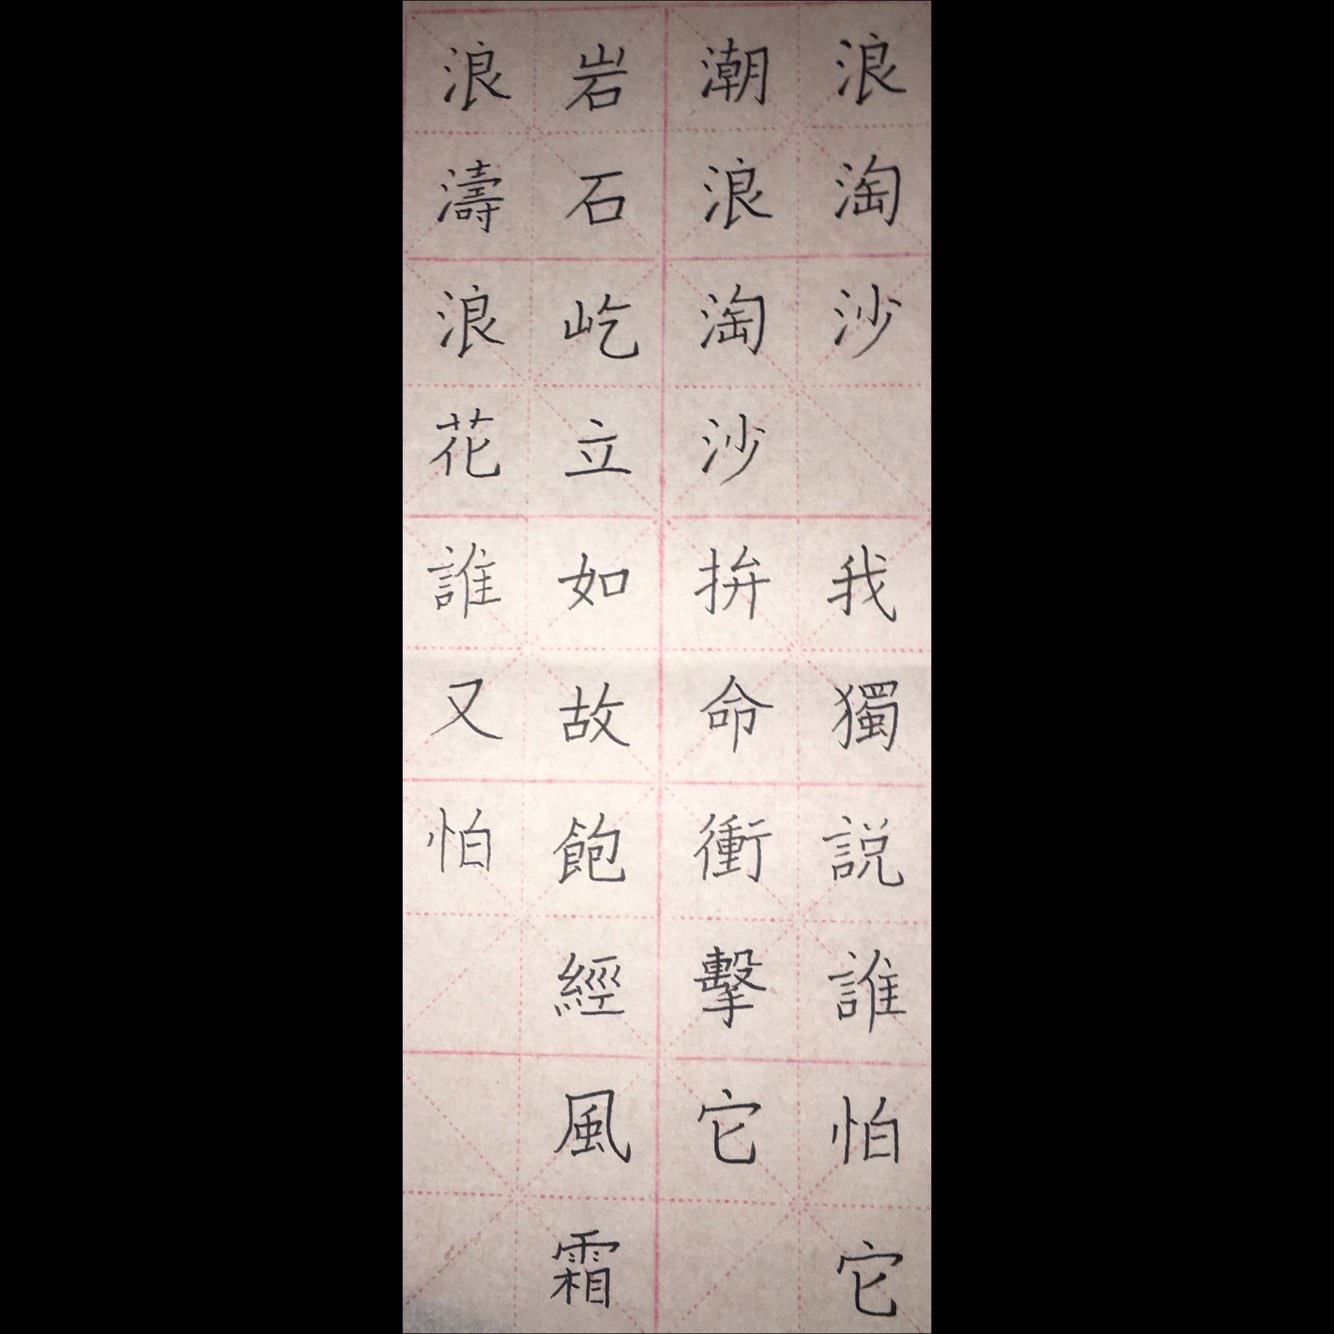 浪淘沙 我獨説誰怕它
潮浪淘沙拚命衝擊它
岩石屹立如故飽經風霜
浪濤浪花誰又怕